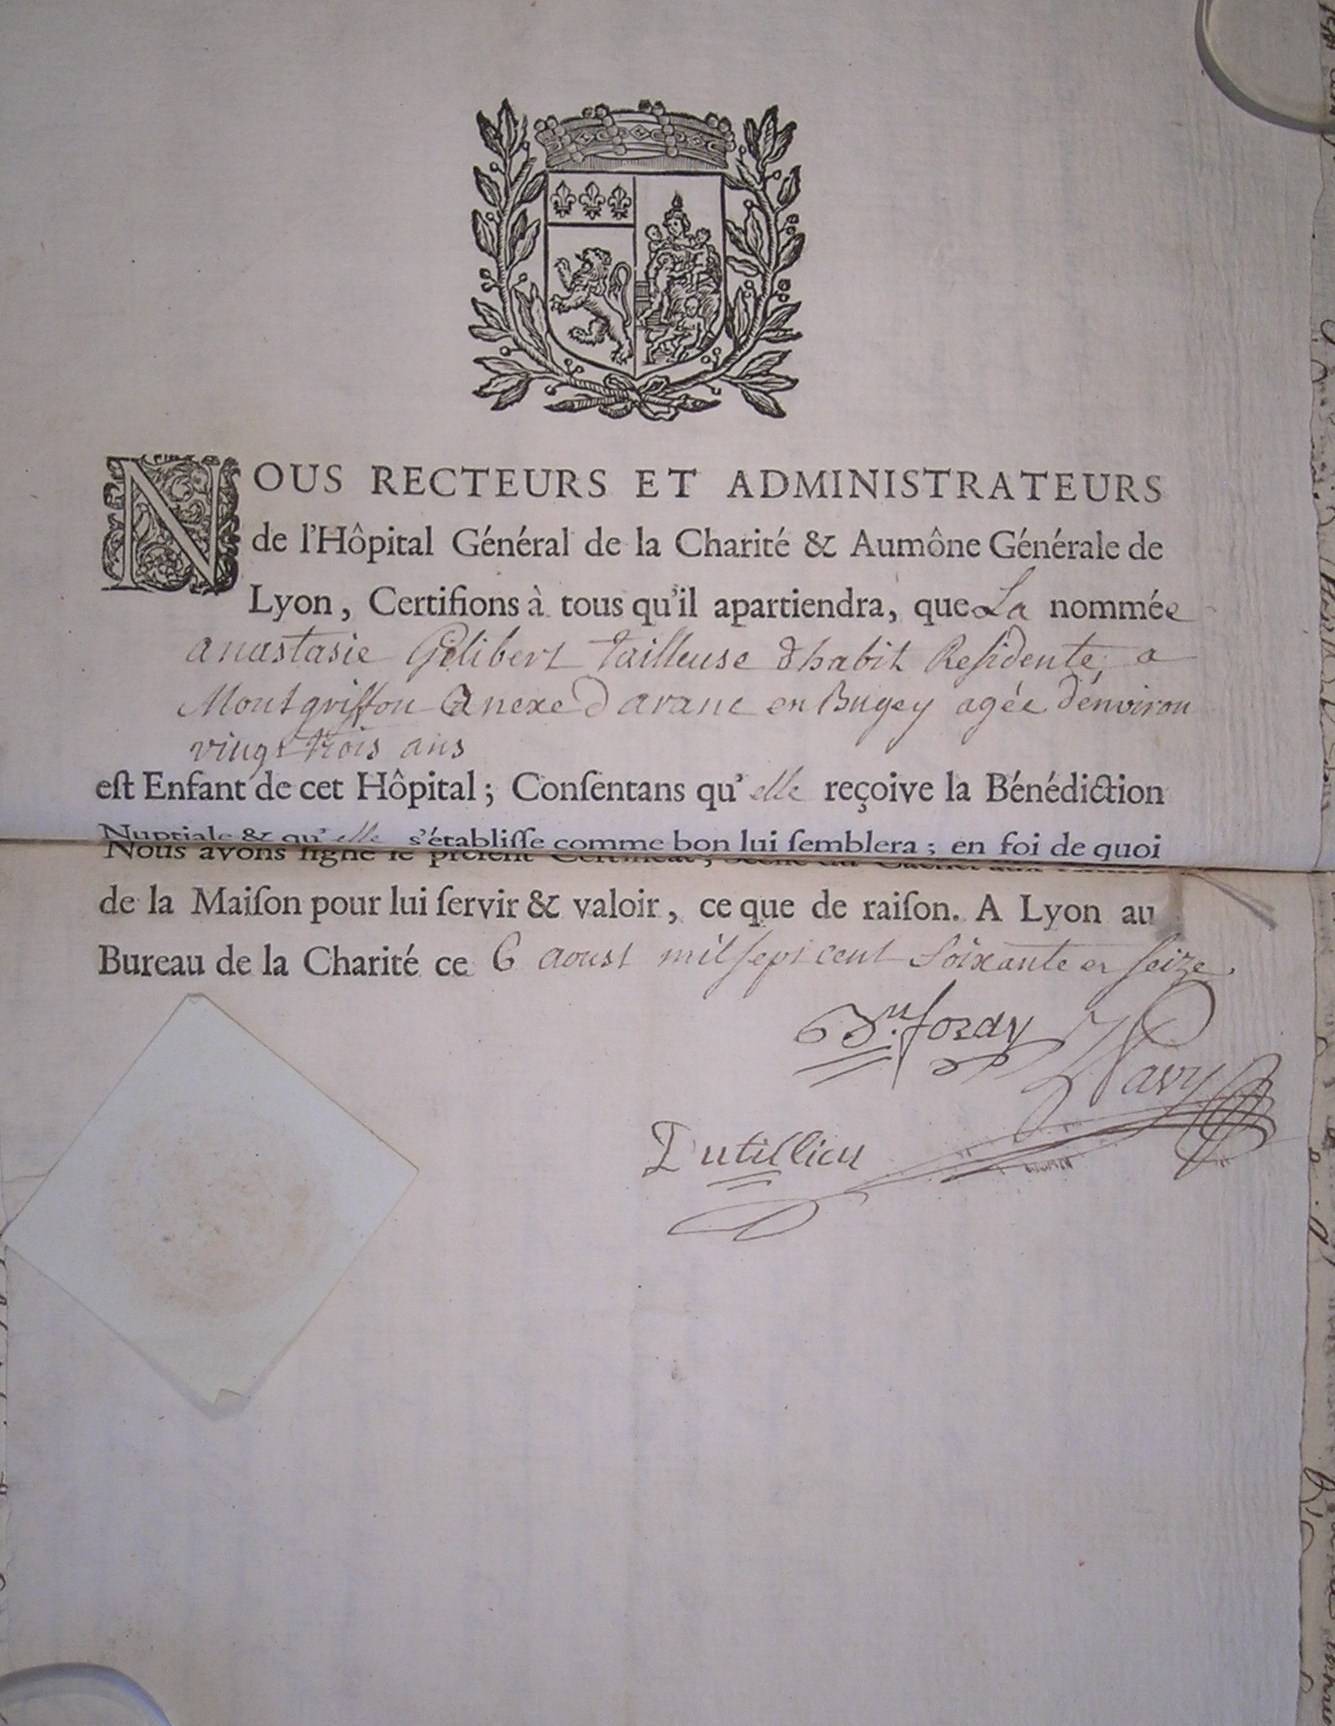 NOUS RECTEURS ET ADMINISTRATEURS
de l'Hôpital Général de la Charité & Aumône Générale de
Lyon, Certifions à tous qu'il apartiendra, que La nommée
anastasie Gelibert tailleuse d'habit Residente a
Montgriffon Anexe Daranc en Bugey agée d'environ
vingt trois ans
eſt Enfant de cet Hôpital ; Conſentans qu'elle reçoive la Bénédiction
Nuptiale & qu'elle s'établiſſe comme bon lui ſemblera ; en foi de quoi
Nous avons ſigné le préſent Certificat, Scellé du Cachet aux
de la Maiſon pour lui ſervir & valoir, ce que de raiſon. A Lyon au
Bureau de la Charité ce 6 aoust mil sept cent Soixante et seize.
Navy
Dutillieu